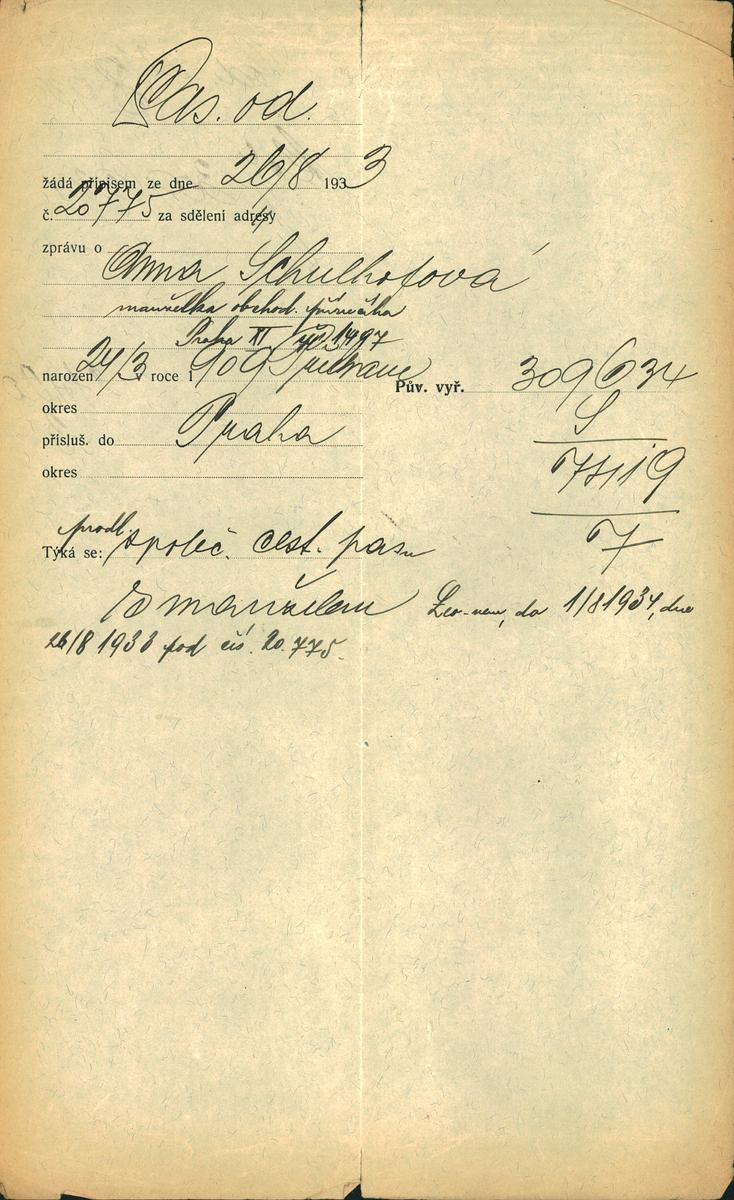 Pas. od.
žádá přípisem ze dne 26/8 1933
č. 20775 za sdělení adresy
zprávu o Anna Schulhofová
manželka obchod. příručího
Praha XI čp. 1497
narozen 24/3 v roce 1909
Pův. vyř. 309634
okres
S
přísluš. do Praha
7419
okres
7
Týká se: prodl. společ. cest. pasu
s manželem
do 1/8 1934, dne
26/8 1933 pod čís. 20.775.